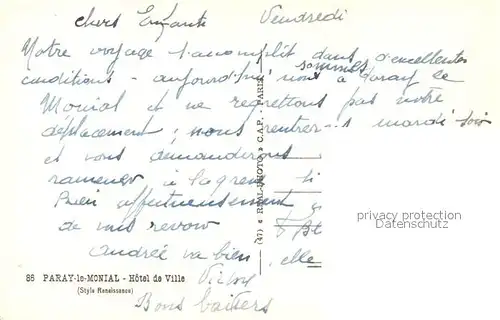 Chers Enfants Vendredi
Notre voyage s'accomplit dans d'excellentes
conditions - aujourd'hui nous sommes à Paray le
Monial et ne regrettons pas notre
déplacement; nous rentrer..s mardi soir
et vous demanderons
ramener à la gren
affectueusement
de vous revoir
Andrée va bien, elle
Victor
Bons baisers
86 PARAY-le-MONIAL - Hôtel de Ville
(Style Renaissance)
(47) « REAL-PHOTO » C.A.P. - PARIS
privacy protection
Datenschutz